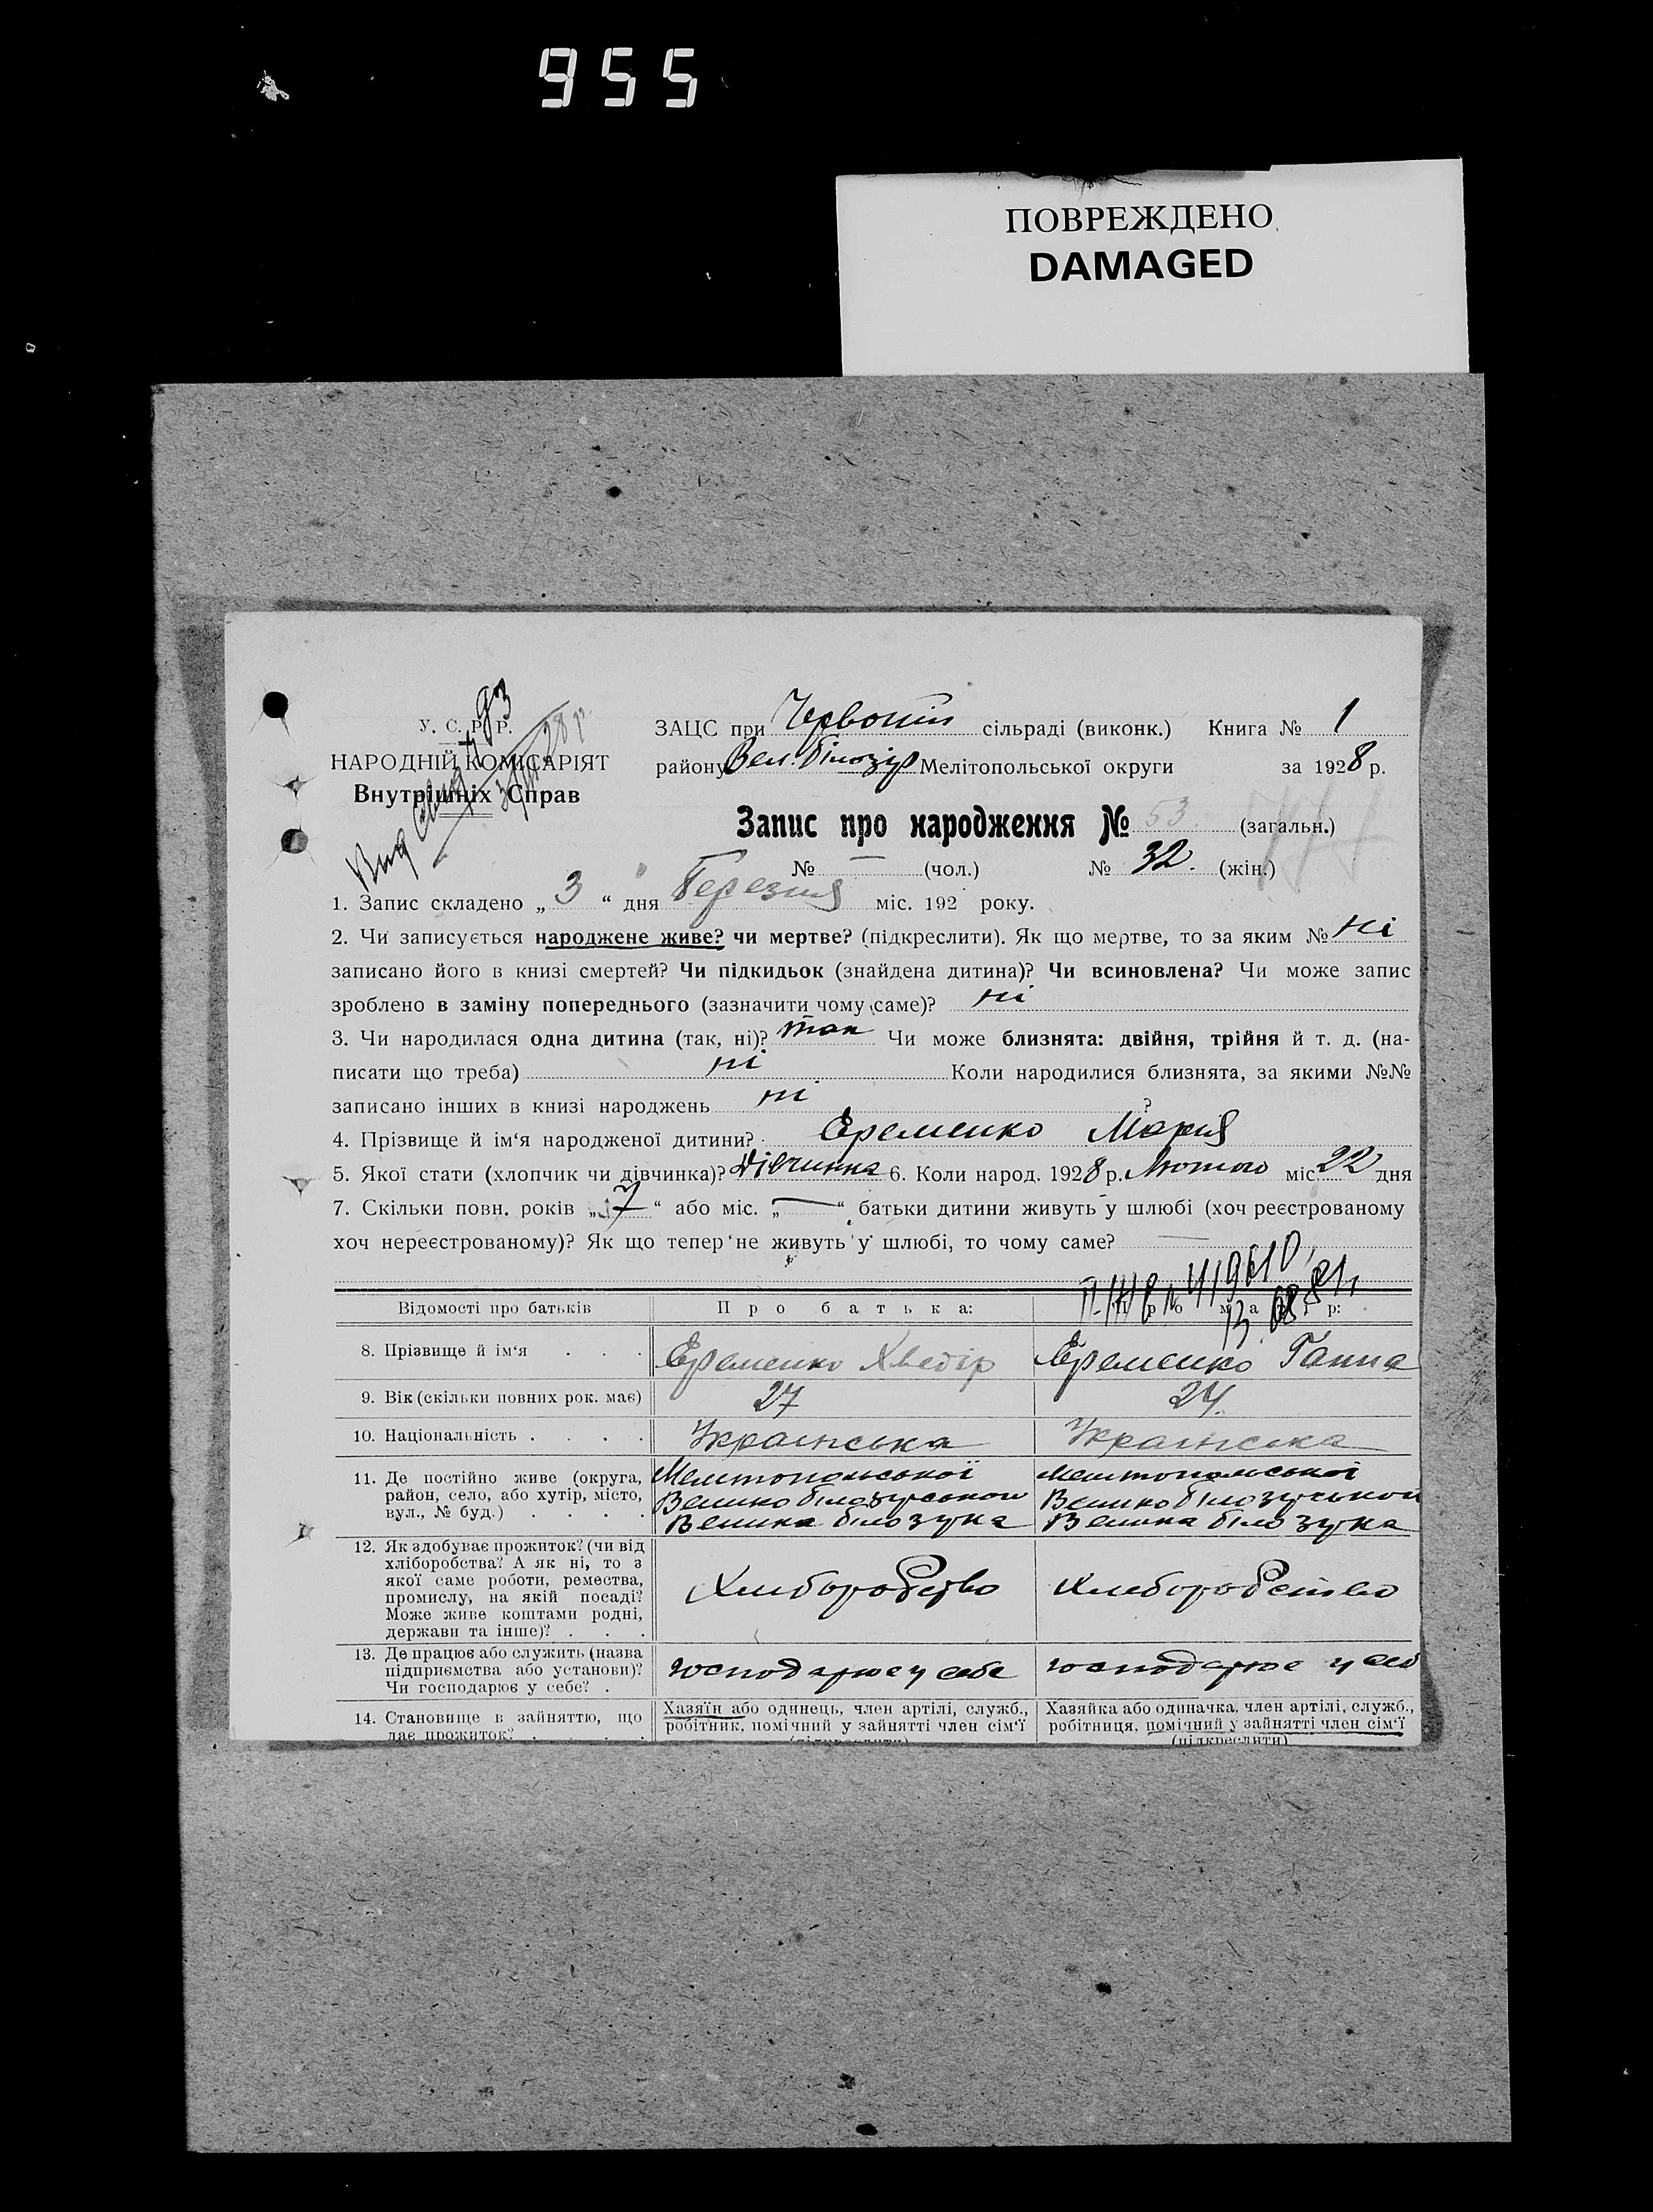 955
ПОВРЕЖДЕНО
DAMAGED
У. С. Р. Р.
НАРОДНІЙ КОМІСАРІЯТ
Внутрішніх Справ
ЗАЦС при Червоній сільраді (виконк.) Книга № 1
району Вел. Білозір Мелітопольської округи за 1928 р.
Запис про народження № 53 (загальн.)
№ — (чол.) № 32. (жін.)
1. Запис складено „ 3 “ дня Березня міс. 192 року.
2. Чи записується народжене живе? чи мертве? (підкреслити). Як що мертве, то за яким № ні
записано його в книзі смертей? Чи підкидьок (знайдена дитина)? Чи всиновлена? Чи може запис
зроблено в заміну попереднього (зазначити чому саме)? ні
3. Чи народилася одна дитина (так, ні)? так Чи може близнята: двійня, трійня й т. д. (на-
писати що треба) ні Коли народилися близнята, за якими №№
записано інших в книзі народжень ні ?
4. Прізвище й ім‘я народженої дитини? Еременко Мария
5. Якої стати (хлопчик чи дівчинка)? Дівчинка 6. Коли народ. 1928 р. Лютого міс. 22 дня
7. Скільки повн. років „ 7 “ або міс. „ — “ батьки дитини живуть у шлюбі (хоч реєстрованому
хоч нереєстрованому)? Як що тепер не живуть у шлюбі, то чому саме? —
Відомості про батьків Про батька: Про матір:
8. Прізвище й ім‘я . . . Еременко Хведір Еременко Ганна
9. Вік (скільки повних рок. має) 27 24.
10. Національність . . . . Українська Українська
11. Де постійно живе (округа, Мелитопольської Мелитопольської
район, село, або хутір, місто, Велико білозурськой Велико білозурськой
вул., № буд.) . . . . Велика білозурка Велика білозурка
12. Як здобуває прожиток? (чи від
хліборобства? А як ні, то з
якої саме роботи, ремества,
промислу, на якій посаді? Хлиборобство Хлеборобство
Може живе коштами родні,
держави та інше)? . . .
13. Де працює або служить (назва
підприємства або установи)? господарює у себе господарює у себ
Чи господарює у себе? .
14. Становище в зайняттю, що Хазяїн або одинець, член артілі, служб., Хазяйка або одиначка, член артілі, служб.,
дає прожиток? . . . . робітник, помічний у зайнятті член сім‘ї робітниця, помічний у зайнятті член сім‘ї
(підкреслити) (підкреслити)